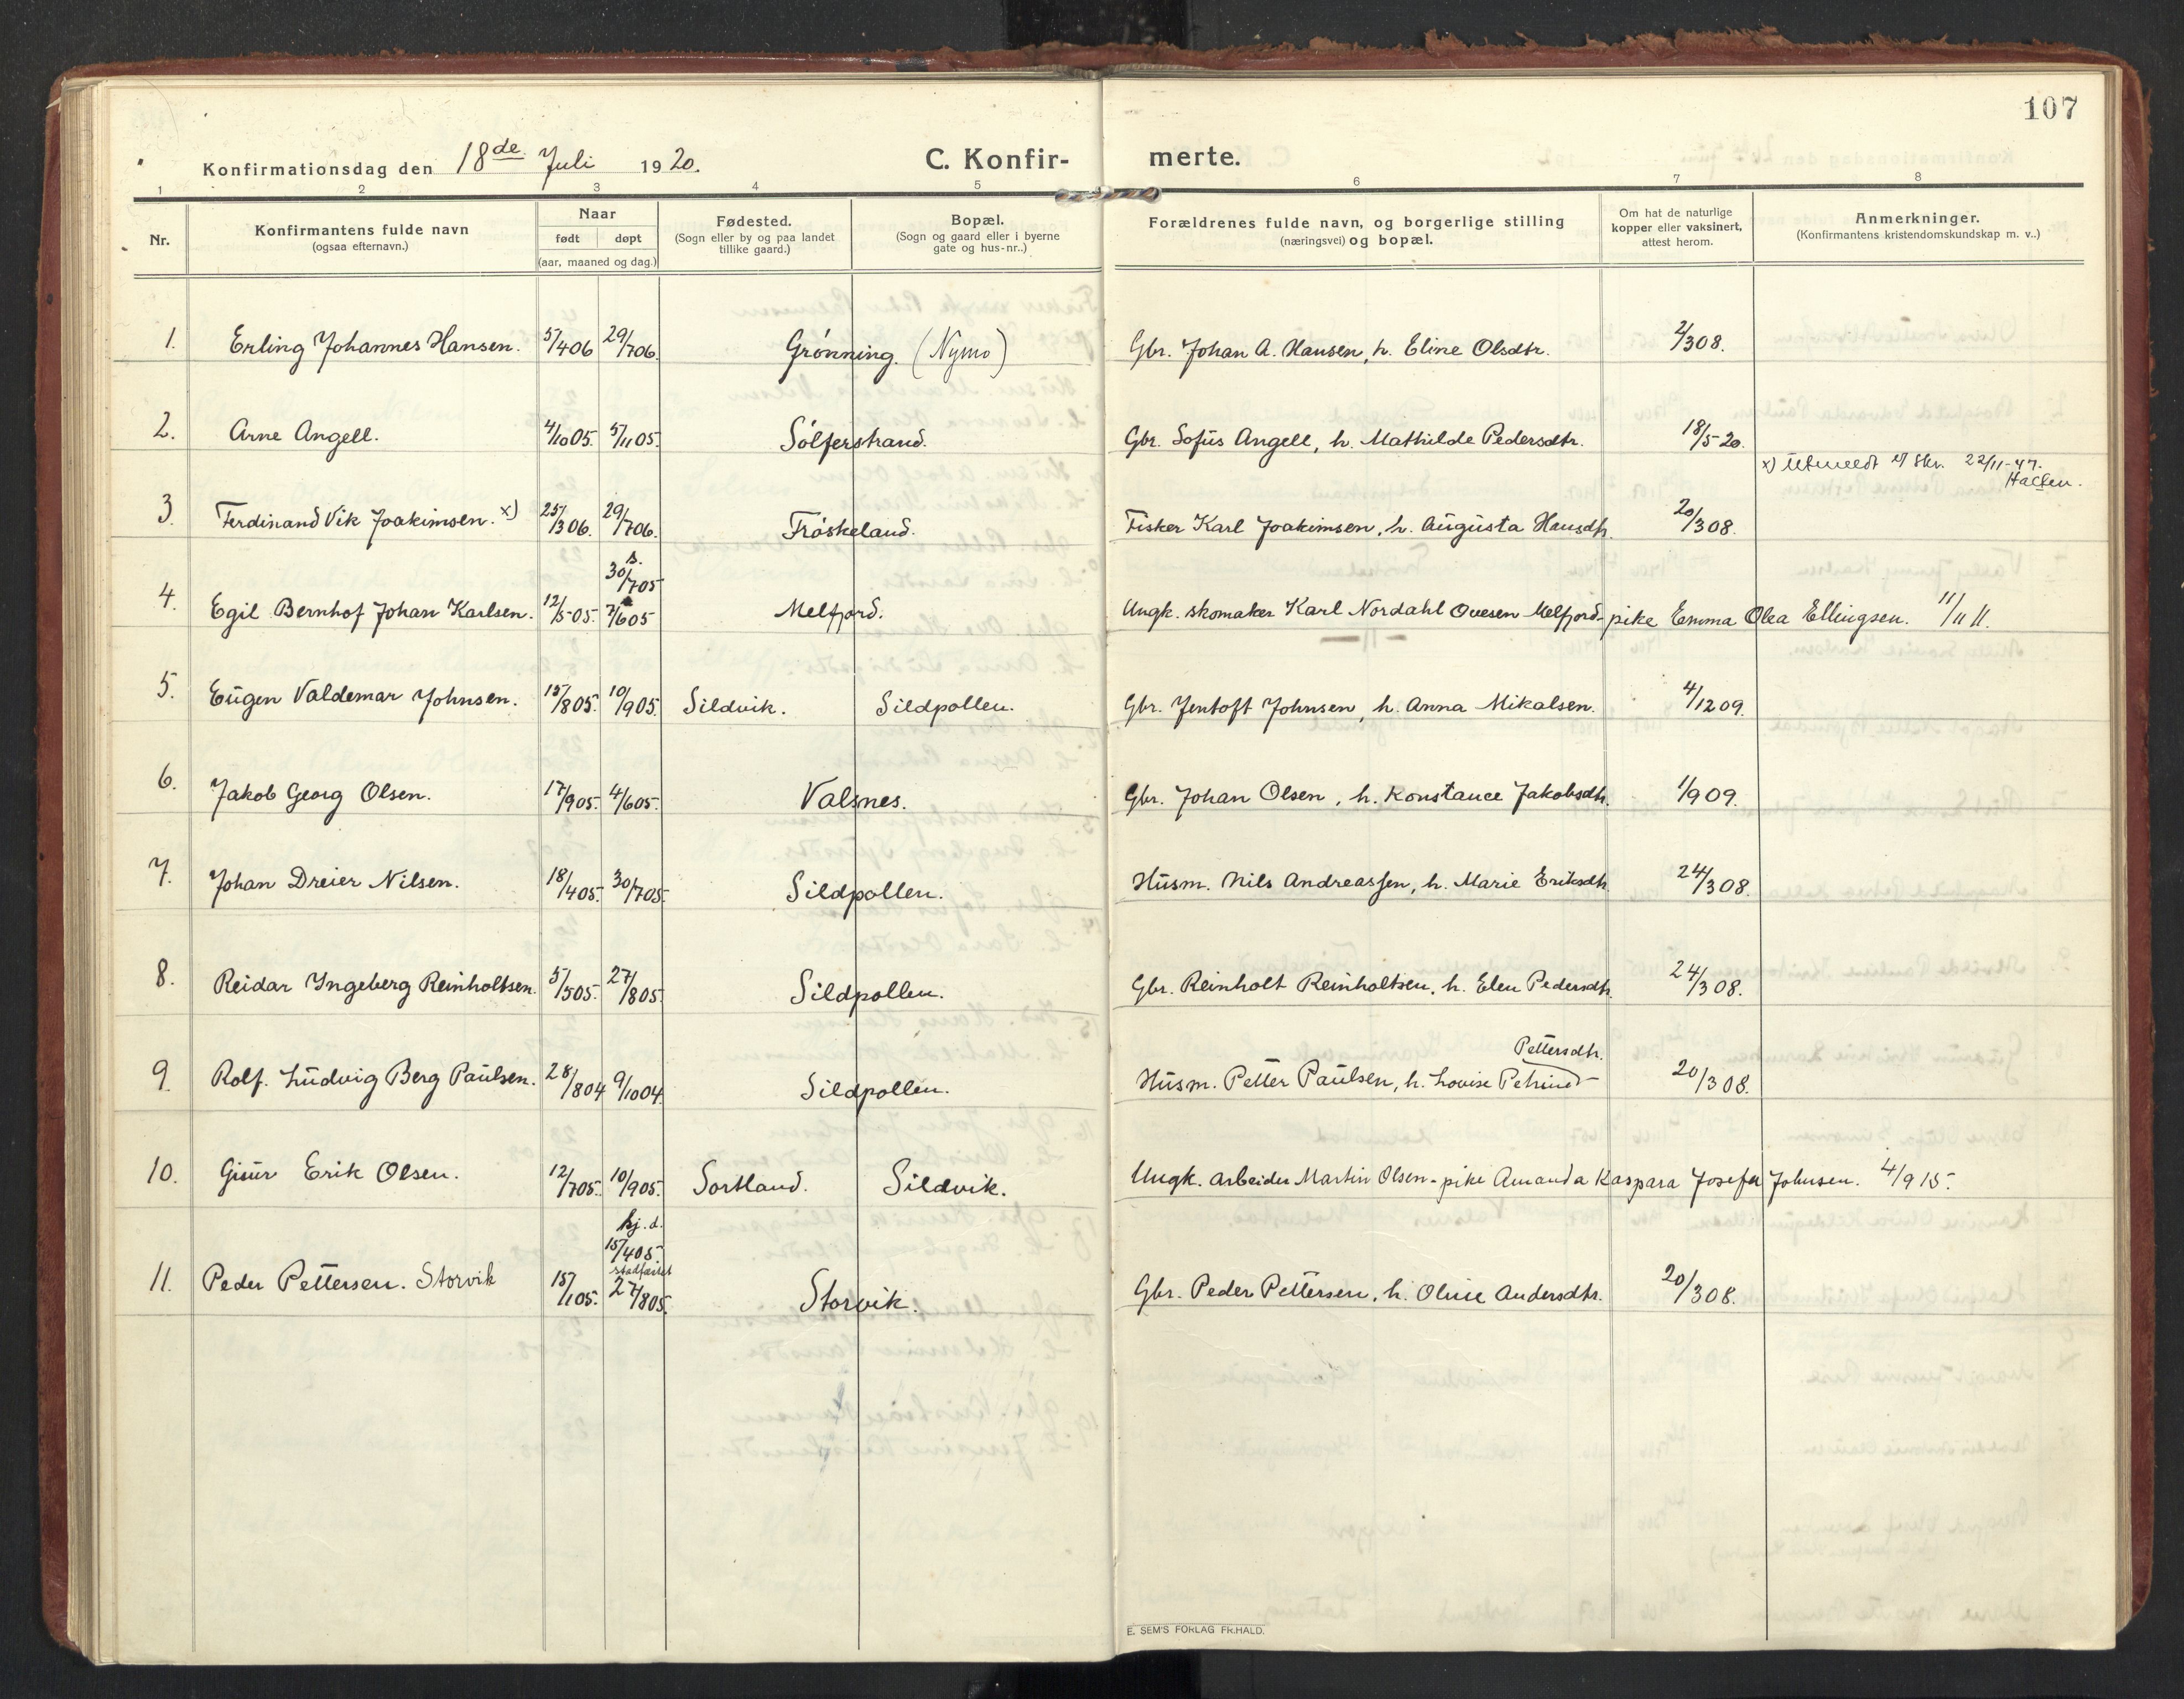 107
Konfirmationsdag den 18de Juli 1920.
C. Konfir- merte.
1 2 3 4 5 6 7 8
Nr.
Konfirmantens fulde navn
(ogsaa efternavn.)
Naar
født døpt
(aar, maaned og dag.)
Fødested.
(Sogn eller by og paa landet
tillike gaard.)
Bopæl.
(Sogn og gaard eller i byerne
gate og hus-nr..)
Forældrenes fulde navn, og borgerlige stilling
(næringsvei) og bopæl.
Om hat de naturlige
kopper eller vaksinert,
attest herom.
Anmerkninger.
(Konfirmantens kristendomskundskap m. v..)
1. Erling Johannes Hansen. 5/4 06 29/7 06. Grønning. (Nymo) Gbr. Johan A. Hansen, h. Eline Olsdtr. 2/3 08.
2. Arne Angell. 4/10 05. 5/11 05. Sölferstrand. Gbr. Sofus Angell, h. Mathilde Pedersdtr. 18/5 20.
x) Utmeldt if skr. 22/11-47.
3. Ferdinand Vik Joakimsen. x) 25/3 06. 29/7 06. Frøskeland. Fisker Karl Joakimsen, h. Augusta Hansdtr. 20/3 08.
s.
30/7 05
4. Egil Bernhof Johan Karlsen. 12/5 05. 7/6 05 Melfjord. Ungk. skomaker Karl Nordahl Ovesen Melfjord - pike Emma Olea Ellingsen. 11/11 11.
— 〃 —
5. Eugen Valdemar Johnsen. 15/8 05. 10/9 05. Sildvik. Sildpollen. Gbr. Jentoft Johnsen, h. Anna Mikalsen. 4/12 09.
6. Jakob Georg Olsen. 17/9 05. 4/6 05. Valsnes. Gbr. Johan Olsen, h. Konstance Jakobsdtr. 1/9 09.
7. Johan Dreier Nilsen. 18/4 05. 30/7 05. Sildpollen. Husm. Nils Andreassen, h. Marie Eriksdtr. 24/3 08.
8. Reidar Ingeberg Reinholtsen. 5/5 05. 27/8 05. Sildpollen. Gbr. Reinholt Reinholtsen, h. Elen Pedersdtr. 24/3 08.
Pettersdtr.
9. Rolf. Ludvig Berg Paulsen. 28/8 04 9/10 04. Sildpollen. Husm. Petter Paulsen, h. Lovise Petrine 20/3 08.
10. Gjuur Erik Olsen. 12/7 05. 10/9 05. Sortland. Sildvik. Ungk. arbeider Martin Olsen - pike Amanda Kaspara Josefa Johnsen. 4/9 15.
hj. d.
15/4 05.
stadfæstet
11. Peder Pettersen. Storvik 15/1 05. 27/8 05. Storvik. Gbr. Peder Pettersen, h. Oline Andersdtr. 20/3 08.
E. SEM'S FORLAG FR.HALD.